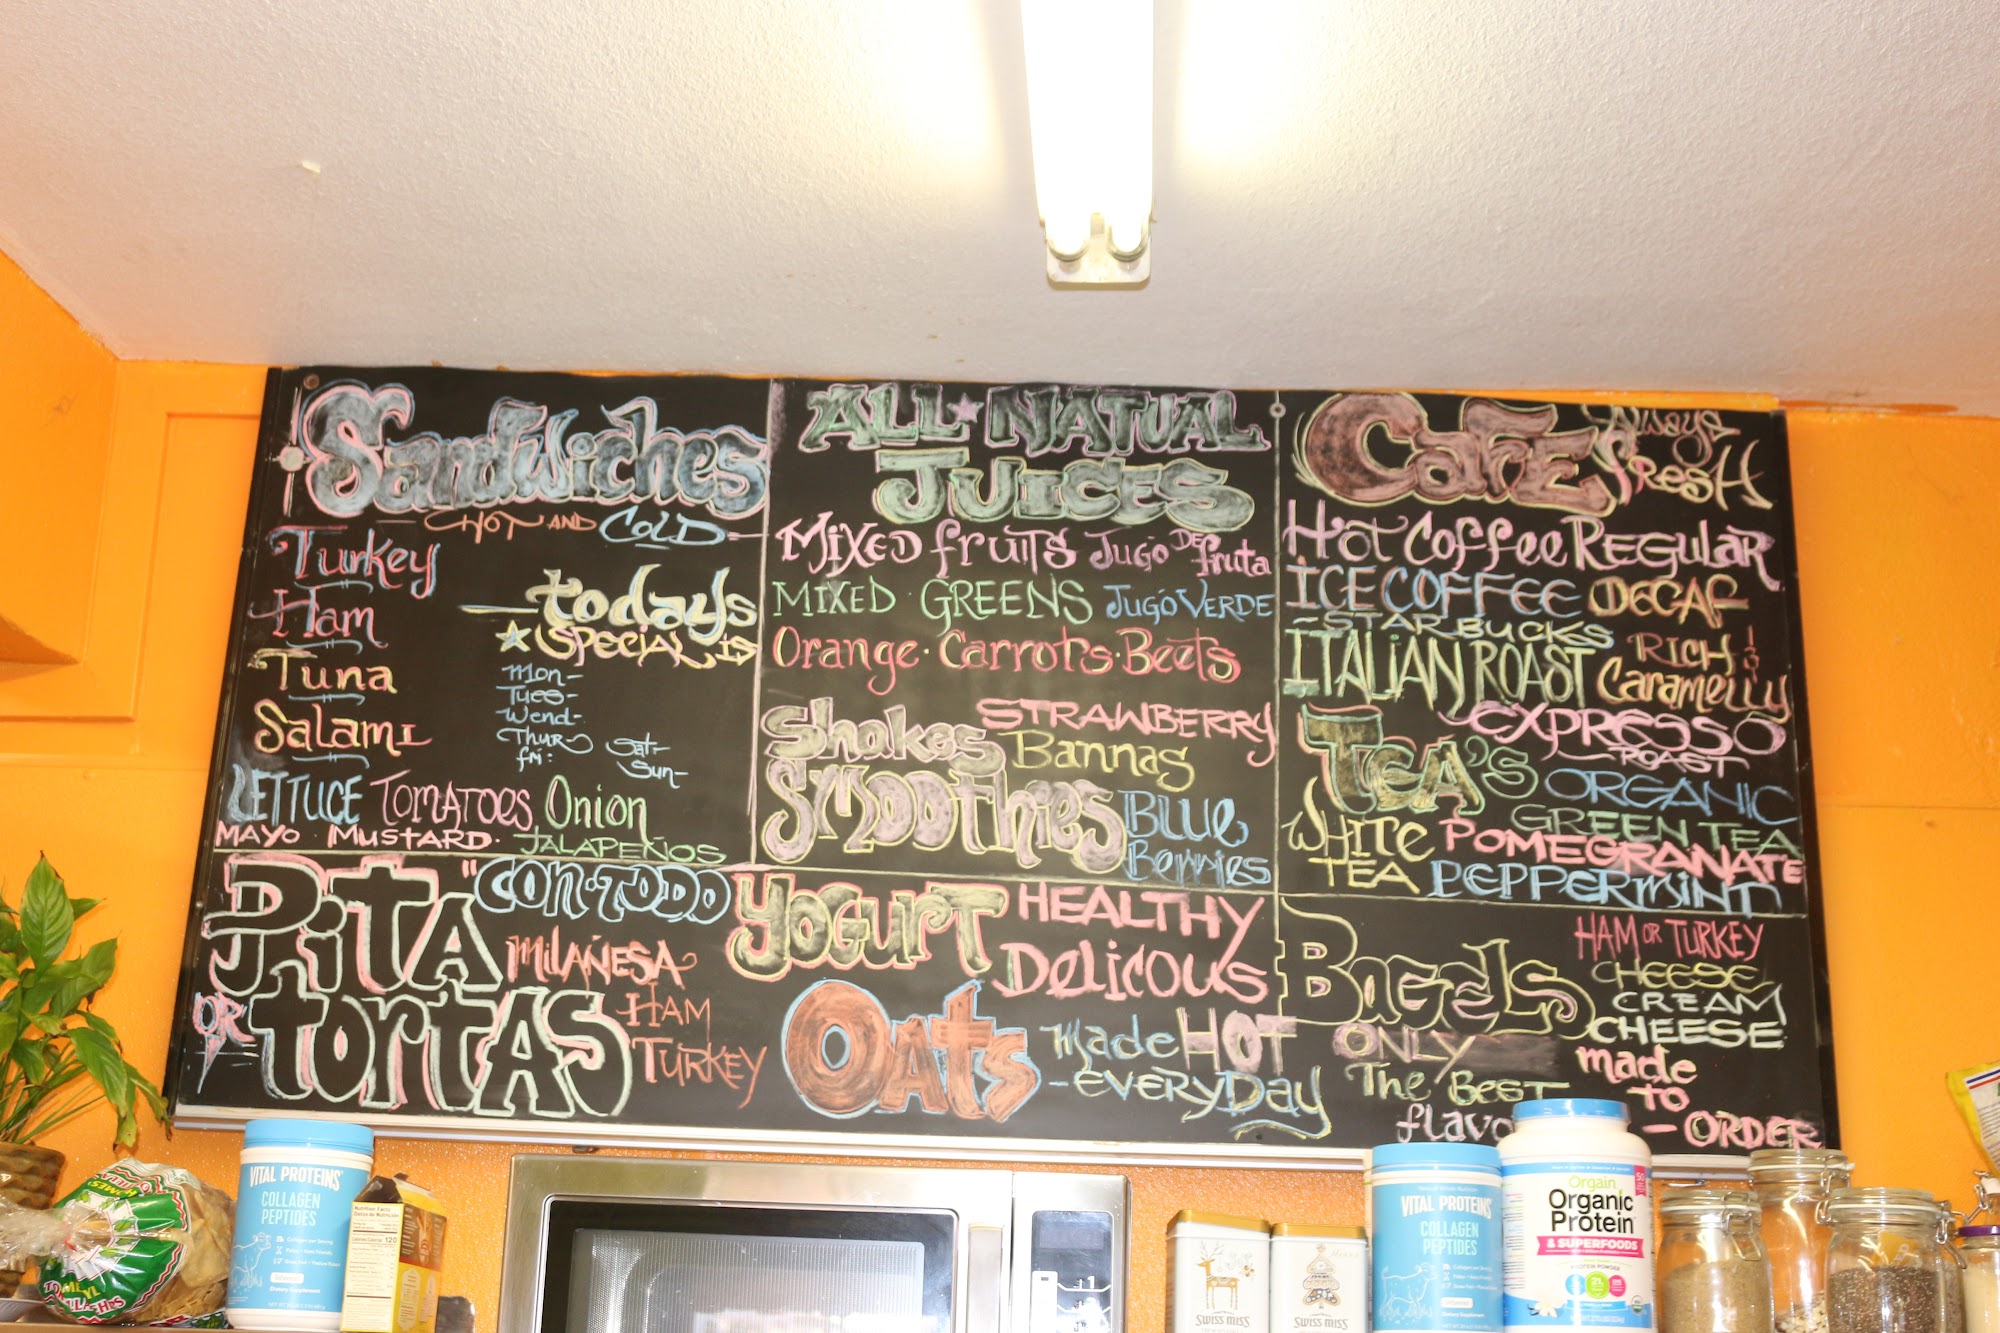 Sandwiches
HOT AND COLD
Turkey
Ham
Tuna
Salami
todays
SPECIAL IS
Mon-
Tues-
Wend-
Thur-
fri:
Sat-
Sun-
LETTUCE TOMATOES Onion
MAYO · MUSTARD · JALAPEÑOS
PITA "CON·TODO
OR tortAS
MILAÑESA
HAM
TURKEY
ALL★NATUAL
JUICES
MIXED fruits Jugo DE fruta
MIXED GREENS JUGO VERDE
Orange · Carrots · Beets
Shakes
SMOOthies
STRAWBERRY
Bannas
BLUE
Berries
YOGURT HEALTHY
DELICOUS
Oats made HOT
- EVERYDAY
CaFE Always fresh
Hot Coffee REGULAR
ICE COFFEE DECAF
- STARBUCKS
ITALIAN ROAST RICH
Caramelly
EXPRESSO
ROAST
TEA'S ORGANIC
GREEN TEA
WHITE TEA
POMEGRANATE
PEPPERMINT
BagELS
HAM OR TURKEY
CHEESE
CREAM
CHEESE
made
TO
- ORDER
ONLY
The BEST
VITAL PROTEINS
COLLAGEN
PEPTIDES
Nutrition Facts
120
SWISS MISS
SWISS MISS
VITAL PROTEINS
COLLAGEN
PEPTIDES
Orgain
Organic
Protein
& SUPERFOODS
PROTEIN POWDER